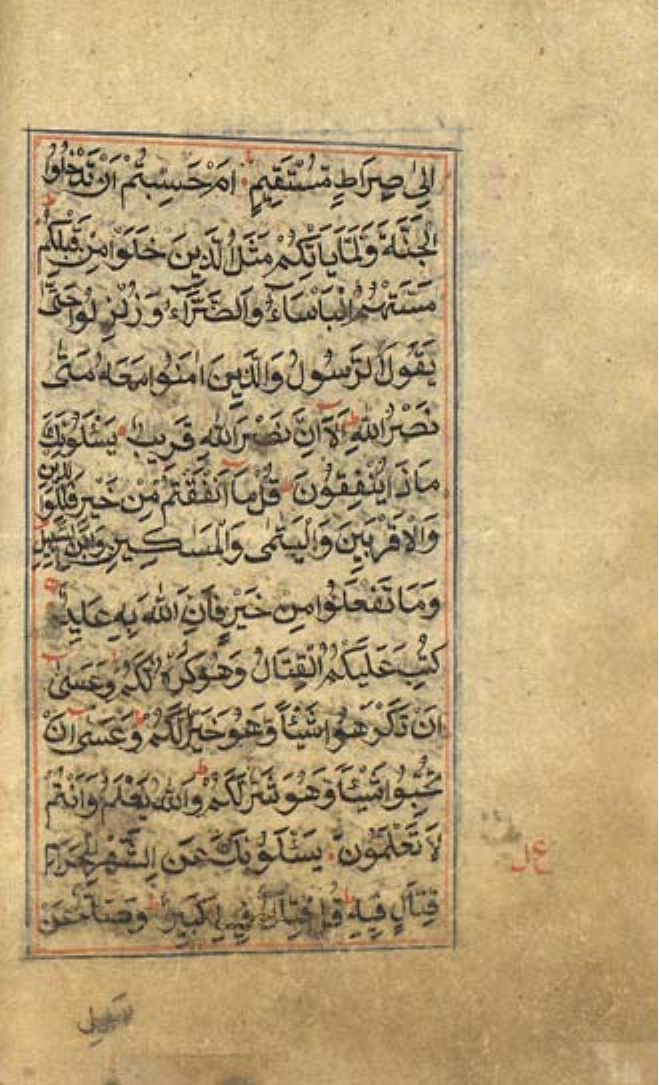 اِلىٰ صِرَاطٍ مُسْتَقِيمٍ اَمْ حَسِبْتُمْ اَنْ تَدْخُلُوا
الْجَنَّةَ وَلَمَّا يَاْتِكُمْ مَثَلُ الَّذِينَ خَلَوْا مِنْ قَبْلِكُمْ
مَسَّتْهُمُ الْبَاْسَاءُ وَالضَّرَّاءُ وَزُلْزِلُوا حَتّٰى
يَقُولَ الرَّسُولُ وَالَّذِينَ اٰمَنُوا مَعَهُ مَتٰى
نَصْرُ اللّٰهِ اَلَا اِنَّ نَصْرَ اللّٰهِ قَرِيبٌ يَسْئَلُونَكَ
مَاذَا يُنْفِقُونَ قُلْ مَا اَنْفَقْتُمْ مِنْ خَيْرٍ فَلِلْوَالِدَيْنِ
وَالْاَقْرَبِينَ وَالْيَتٰمٰى وَالْمَسٰكِينِ وَابْنِ السَّبِيلِ
وَمَا تَفْعَلُوا مِنْ خَيْرٍ فَاِنَّ اللّٰهَ بِهِ عَلِيمٌ
كُتِبَ عَلَيْكُمُ الْقِتَالُ وَهُوَ كُرْهٌ لَكُمْ وَعَسٰى
اَنْ تَكْرَهُوا شَيْئًا وَهُوَ خَيْرٌ لَكُمْ وَعَسٰى اَنْ
تُحِبُّوا شَيْئًا وَهُوَ شَرٌّ لَكُمْ وَاللّٰهُ يَعْلَمُ وَاَنْتُمْ
لَا تَعْلَمُونَ يَسْئَلُونَكَ عَنِ الشَّهْرِ الْحَرَامِ
قِتَالٍ فِيهِ قُلْ قِتَالٌ فِيهِ كَبِيرٌ وَصَدٌّ عَنْ
سبيل